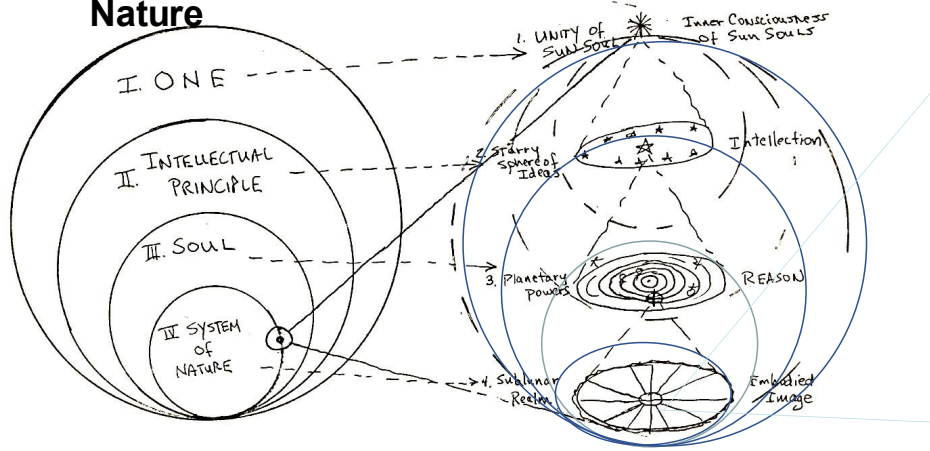 Nature
I. ONE
II. INTELLECTUAL
PRINCIPLE
III. SOUL
IV SYSTEM
of
NATURE
1. UNITY OF
SUN SOUL
Inner Consciousness
of Sun Souls
2. Starry
sphere of
Ideas
Intellection
3. Planetary
Powers
REASON
4. Sublunar
Realm
Embodied
Image